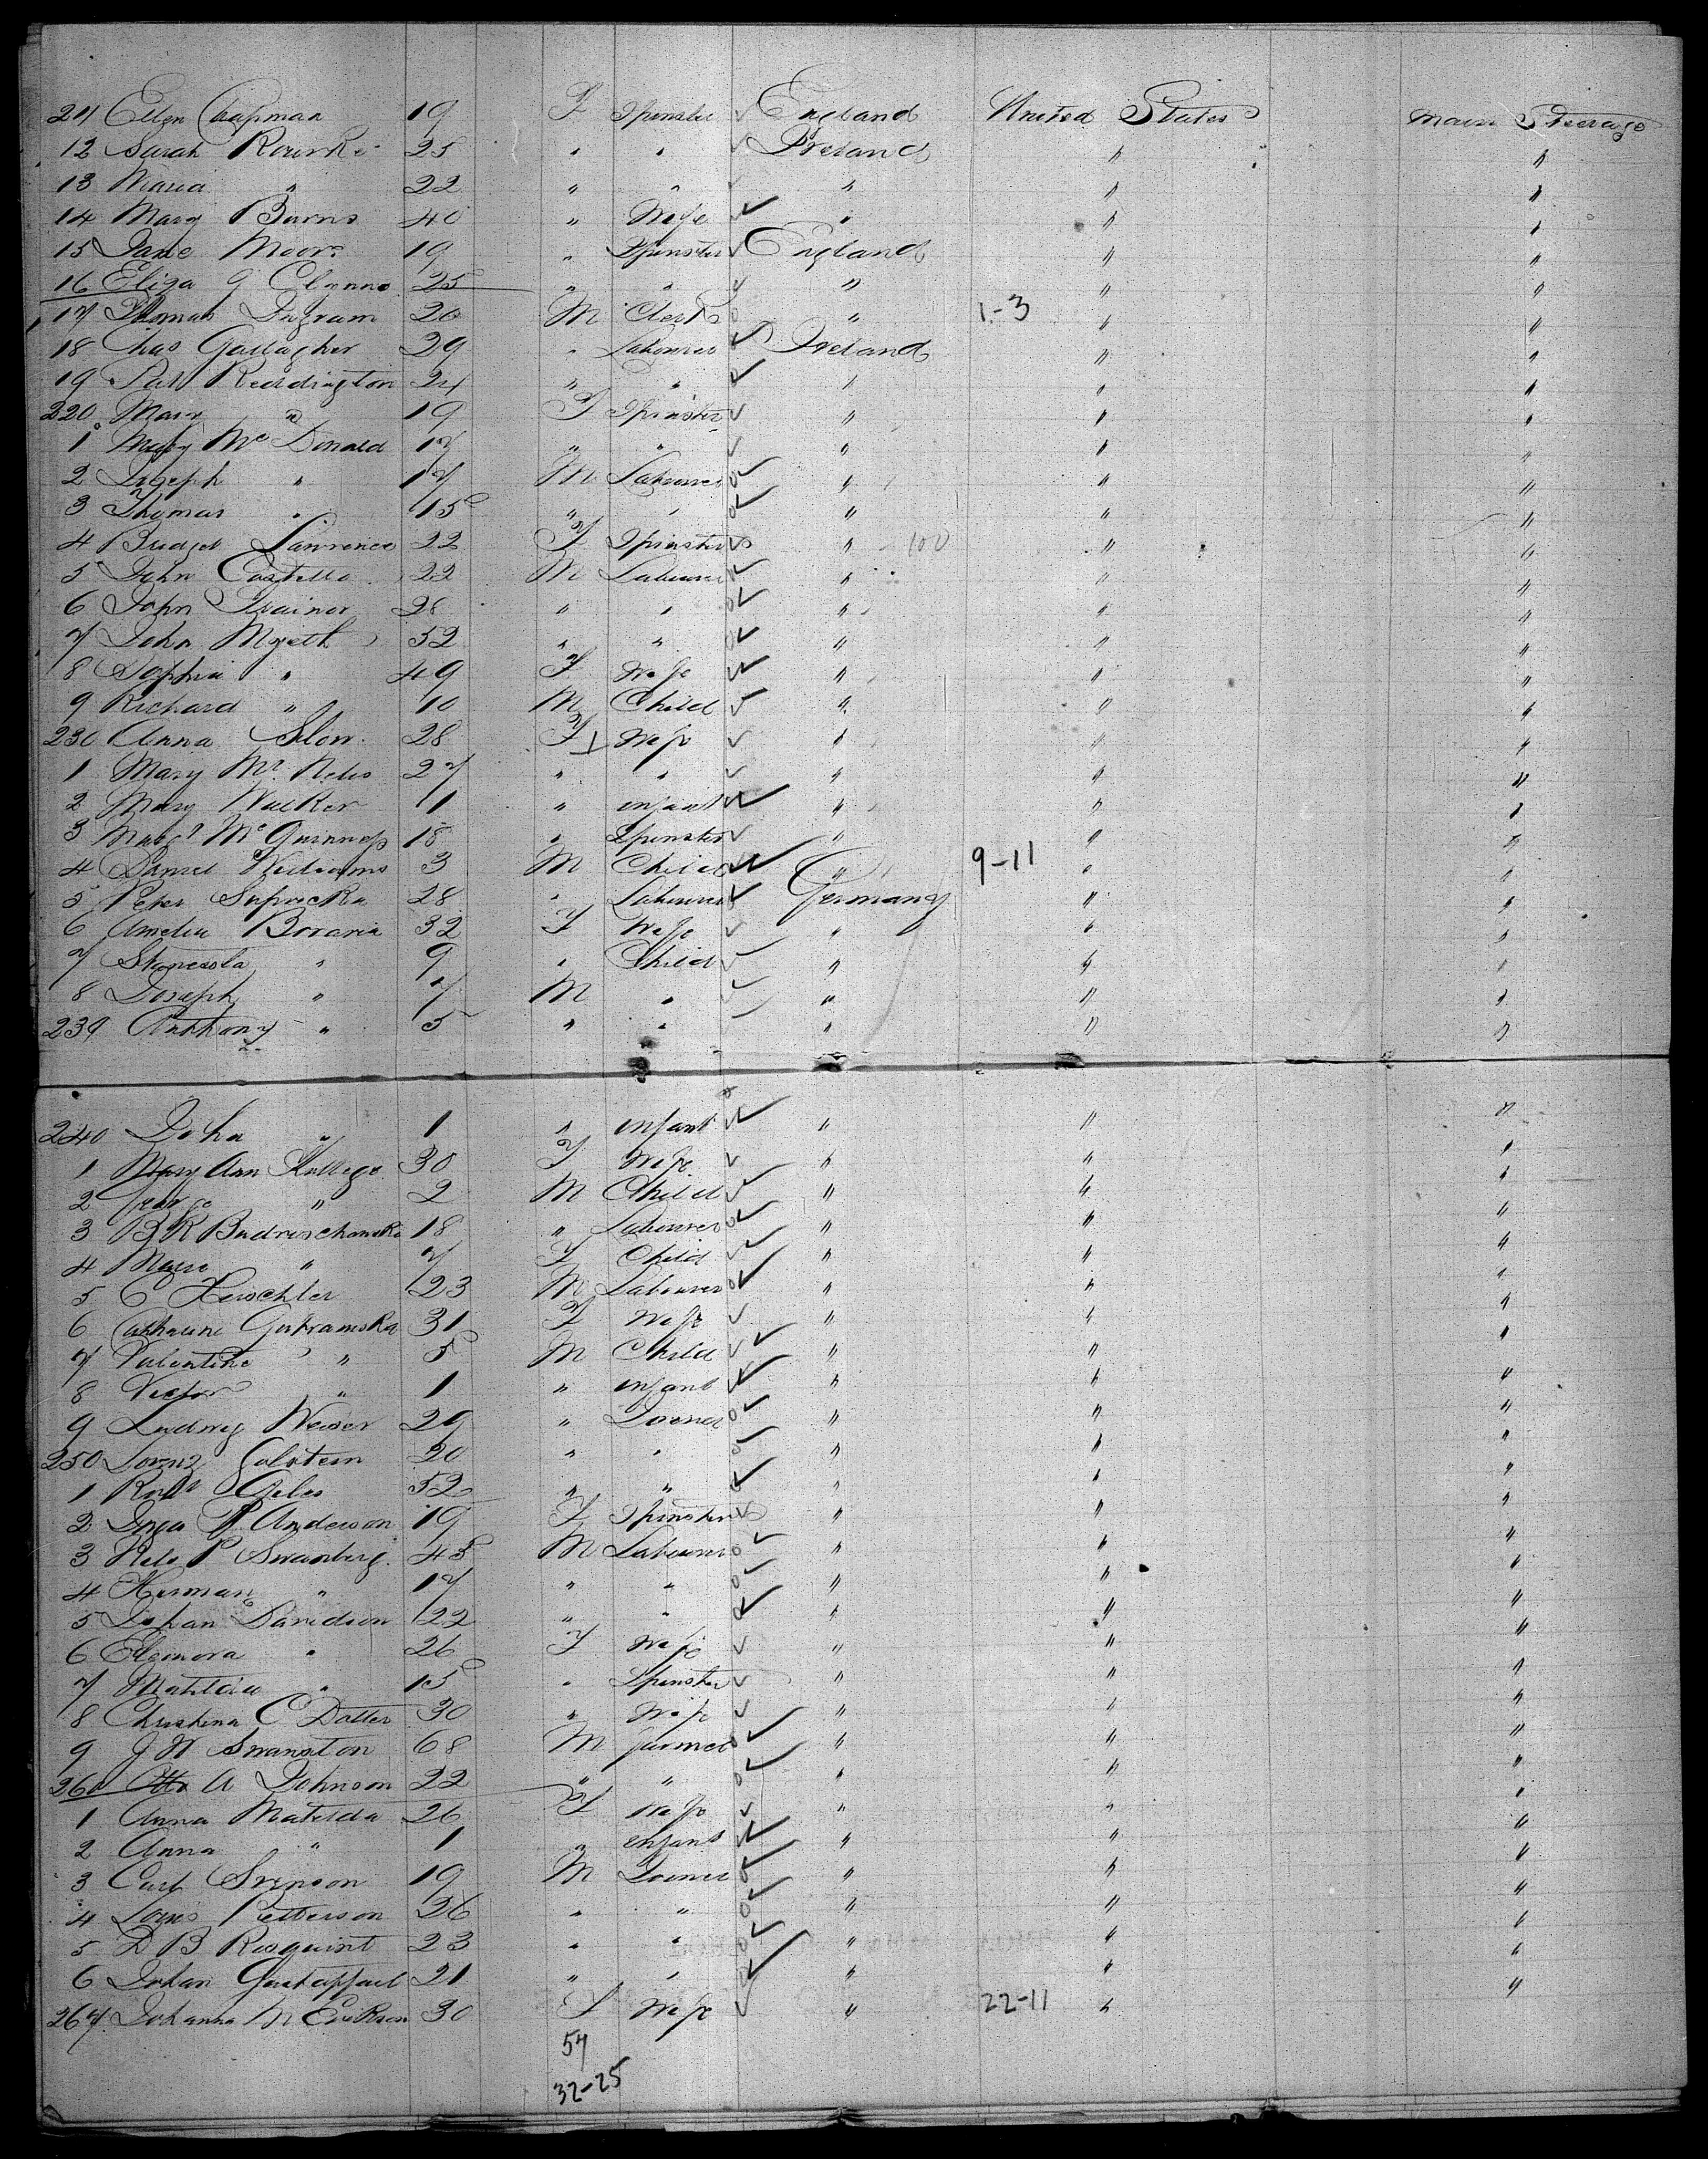 211 Ellen Chapman 19 F Spinster England United States Main Steerage
12 Sarah Rourke 25 " " Ireland " "
13 Maria " 22 " " " " "
14 Mary Burns 40 " Wife " " "
15 Jane Moore 19 " Spinster England " "
16 Eliza G 25 " " " " "
17 Thomas Ingram 20 M Clerk " 1-3 " "
18 Chas Gallagher 29 " Labourer Ireland " "
19 Pat Reardington 24 " " " " "
220 Mary " 19 F Spinster " " "
1 Mary McDonald 17 " " " " "
2 Joseph " 17 M Labourer " " "
3 Thomas " 15 " " " " "
4 Bridget Lawrence 22 F Spinster " 100 " "
5 John Costello 22 M Labourer " " "
6 John Trainor 28 " " " " "
7 John Myeth 52 " " " " "
8 Sophia " 49 F Wife " " "
9 Richard " 10 M Child " " "
230 Anna Slow 28 F Wife " " "
1 Mary Mc 27 " " " " "
2 Mary Walker 1 " infant " " "
3 Margt McGuinness 18 " Spinster " " "
4 Daniel Williams 3 M Child " 9-11 " "
5 Peter Supricka 28 " Labourer Germany " "
6 Amelia Borania 32 F Wife " " "
7 Stanesola " 9 " Child " " "
8 Joseph " 7 M " " " "
239 Anthony " 5 " " " " "
240 John " 1 " infant " " "
1 Mary Ann 30 F Wife " " "
2 George " 2 M Child " " "
3 B K 18 " Labourer " " "
4 Marie " 7 F Child " " "
5 C Herschler 23 M Labourer " " "
6 Catharine 31 F Wife " " "
7 Valentine " 5 M Child " " "
8 Victor " 1 " infant " " "
9 Ludwig Weiser 29 " Joiner " " "
250 Golstein 20 " " " " "
1 Robt Giles 52 " " " " "
2 Inga P Anderson 19 F Spinster " " "
3 Nels P Swanberg 45 M Labourer " " "
4 Herman " 17 " " " " "
5 Johan Davidson 22 " " " " "
6 Eleonora " 26 F Wife " " "
7 Matilda " 15 " Spinster " " "
8 Christina C Dotter 30 " Wife " " "
9 J W Swanston 68 M farmer " " "
260 A Johnson 22 " " " " "
1 Anna Matilda 26 F Wife " " "
2 Anna " 1 " infant " " "
3 Carl Svenson 19 M Joiner " " "
4 Louis Petterson 26 " " " " "
5 D B Rosquint 23 " " " " "
6 Johan 21 " " " " "
267 Johanna M Erikson 30 F Wife " 22-11 " "
57
32-25